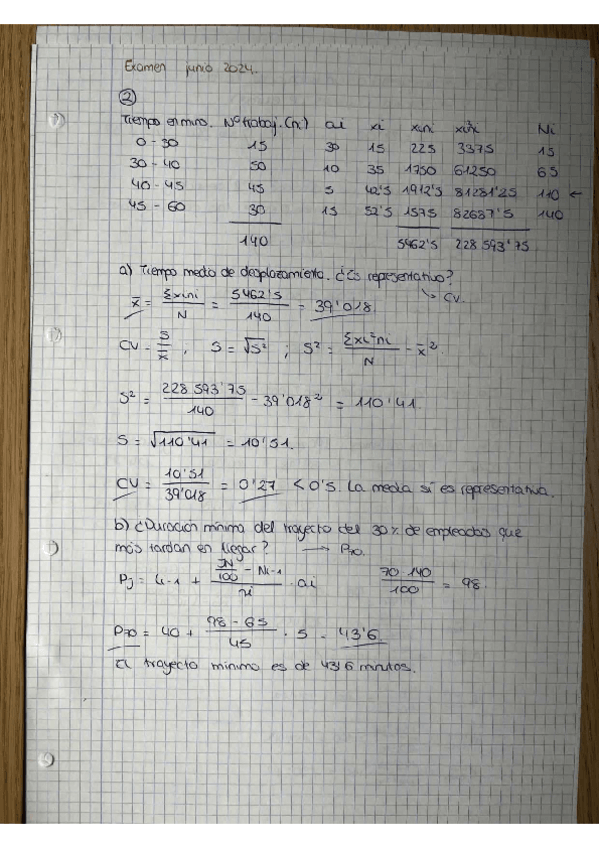 Examen junio 2024.
②
Tiempo en mins. Nº trabaj. (ni) ai xi xini xi²ni Ni
0 - 30 15 30 15 225 3375 15
30 - 40 50 10 35 1750 61250 65
40 - 45 45 5 42'5 1912'5 81281'25 110 ←
45 - 60 30 15 52'5 1575 82687'5 140
140 5462'5 228 593'75
a) Tiempo medio de desplazamiento. ¿Es representativo?
↘ CV.
x̄ = Σxini / N = 5462'5 / 140 = 39'018.
CV = S / x̄ , S = √S² ; S² = Σxi²ni / N - x̄².
S² = 228 593'75 / 140 - 39'018² = 110'41.
S = √110'41 = 10'51.
CV = 10'51 / 39'018 = 0'27 < 0'5. La media sí es representativa.
b) ¿Duración mínima del trayecto del 30% de empleados que
más tardan en llegar? → P70.
Pj = Li-1 + (JN/100 - Ni-1) / ni · ai 70·140 / 100 = 98.
P70 = 40 + (98 - 65) / 45 · 5 = 43'6.
El trayecto mínimo es de 43'6 minutos.